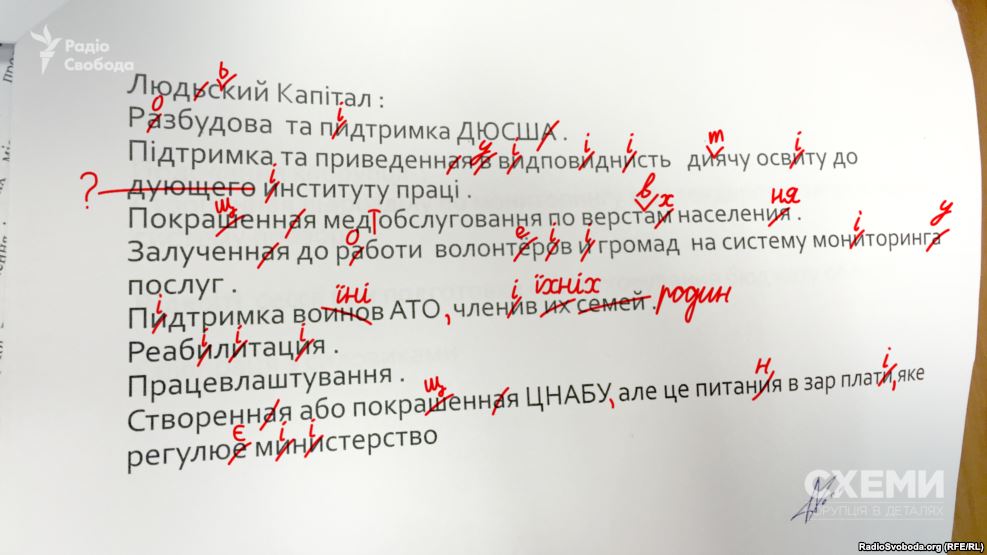 Радіо
Свобода
ь
Людьский Капітал :
о і
Разбудова та пидтримка ДЮСША .
у і і і т і
Підтримка та приведенная в видповидниcть диячу освиту до
? і
дующего институту праці .
щ в х ня
Покрашенная мед обслуговання по верстам населения .
о е і і і у
Залученная до работи волонтёров и громад на систему мониторинга
послуг .
і їні , і їхніх родин
Пидтримка воинов АТО членив их семей .
і і і
Реабилитация .
Працевлаштування .
щ , н і ,
Створенная або покрашенная ЦНАБУ але це питания в зар плати яке
є і і
регулюе министерство
СХЕМИ
КОРУПЦІЯ В ДЕТАЛЯХ
RadioSvoboda.org (RFE/RL)